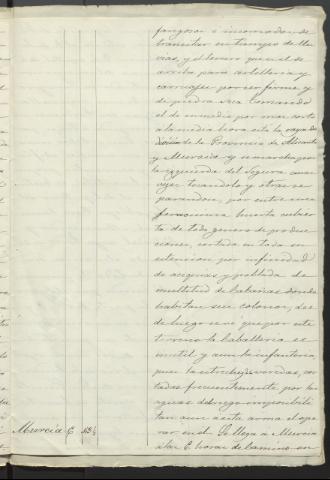 fangosos e incomodos de
transitar en tiempo de llu
vias, y el tercero que es el de
arriba para artilleria y
carruajes por ser firme y
de piedra seca tomando
el de en medio por mas corto
a la media hora esta la raya de
division de la Provincia de Alicante
y Murcia y se marcha por
la izquierda del Segura unas
veces tocandolo y otras se
parandose, por entre una
hermosisima huerta cubier
ta de todo genero de produc
ciones, cortada en toda su
estension por infinidad
de acequias y poblada de
multitud de cabañas donde
habitan sus colonos, des
de luego se vé que por este
terreno la caballeria es
inutil y aun la infanteria,
pues las estrechas veredas, cor
tadas frecuentemente por las
aguas del riego imposibili
tan aun a esta arma el ope
rar en él. Se llega a Murcia
Murcia 6
a las 6 horas de camino en